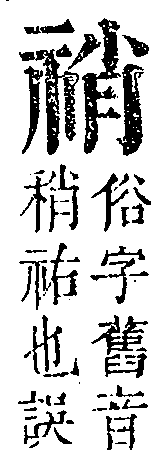 䄌
俗字舊音
稍祐也誤